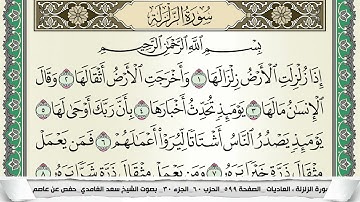 سُورَةُ الزَّلْزَلَةِ
بِسْمِ اللَّهِ الرَّحْمَٰنِ الرَّحِيمِ
إِذَا زُلْزِلَتِ الْأَرْضُ زِلْزَالَهَا ١ وَأَخْرَجَتِ الْأَرْضُ أَثْقَالَهَا ٢ وَقَالَ
الْإِنسَٰنُ مَا لَهَا ٣ يَوْمَئِذٍ تُحَدِّثُ أَخْبَارَهَا ٤ بِأَنَّ رَبَّكَ أَوْحَىٰ لَهَا ٥
يَوْمَئِذٍ يَصْدُرُ النَّاسُ أَشْتَاتًا لِّيُرَوْا أَعْمَٰلَهُمْ ٦ فَمَن يَعْمَلْ
مِثْقَالَ ذَرَّةٍ خَيْرًا يَرَهُ ٧ وَمَن يَعْمَلْ مِثْقَالَ ذَرَّةٍ شَرًّا يَرَهُ ٨
سورة الزلزلة ، العاديات . الصفحة ٥٩٩ الحزب ٦٠ الجزء ٣٠ . بصوت الشيخ سعد الغامدي حفص عن عاصم